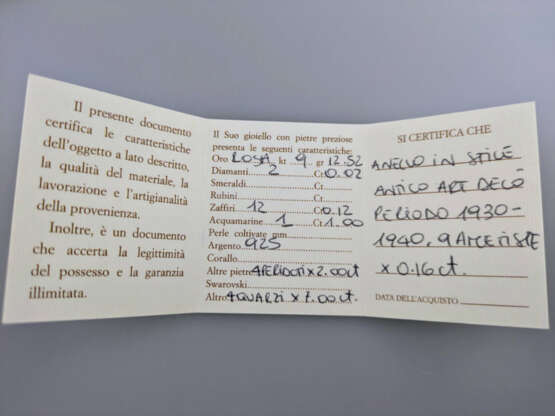 Il presente documento
certifica le caratteristiche
dell'oggetto a lato descritto,
la qualità del materiale, la
lavorazione e l'artigianalità
della provenienza.
Inoltre, è un documento
che accerta la legittimità
del possesso e la garanzia
illimitata.
Il Suo gioiello con pietre preziose
presenta le seguenti caratteristiche:
Oro ROSA kt 9 gr 12.52
Diamanti 2 Ct 0.02
Smeraldi Ct
Rubini Ct
Zaffiri 12 Ct 0.12
Acquamarine 1 Ct 1.00
Perle coltivate mm
Argento 925
Corallo
Altre pietre 4 PERIDOTI x 2.00ct
Swarovski
Altro 4 QUARZI x 7.00ct.
SI CERTIFICA CHE
ANELLO IN STILE
ANTICO ART DECÒ
PERIODO 1930-
1940, 9 AMETISTE
x 0.16ct.
DATA DELL'ACQUISTO